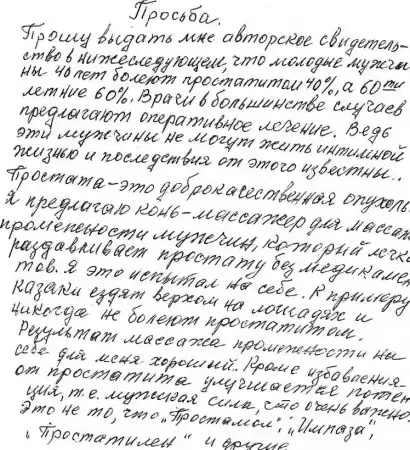 Просьба.
Прошу выдать мне авторское свидетель-
ство в нижеследующем, что молодые мужчи
ны 40 лет болеют простатитом 40%, а 60ти
летние 60%. Врачи в большинстве случаев
предлагают оперативное лечение. Ведь
эти мужчины не могут жить интимной
жизнью и последствия от этого известны..
Простата-это доброкачественная опухоль
Я предлагаю конь-массажер для массаж
промежности мужчин, который легко
раздавливает простату без медикамен
тов. Я это испытал на себе. К примеру
казаки ездят верхом на лошадях и
никогда не болеют простатитом.
Результат массажа промежности на
себе для меня хороший. Кроме избавления
от простатита улучшается потен
ция, т.е. мужская сила, что очень важно.
Это не то, что „Простамол", „Импаза",
„Простатилен" и другие